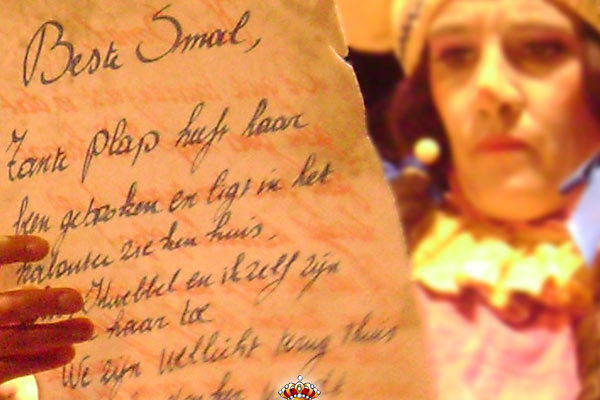 Beste Smal,
Tante plap heeft haar
been gebroken en ligt in het
kabouter zieken huis.
Kwebbel en ik zelf zijn
haar toe
We zijn wellicht terug thuis